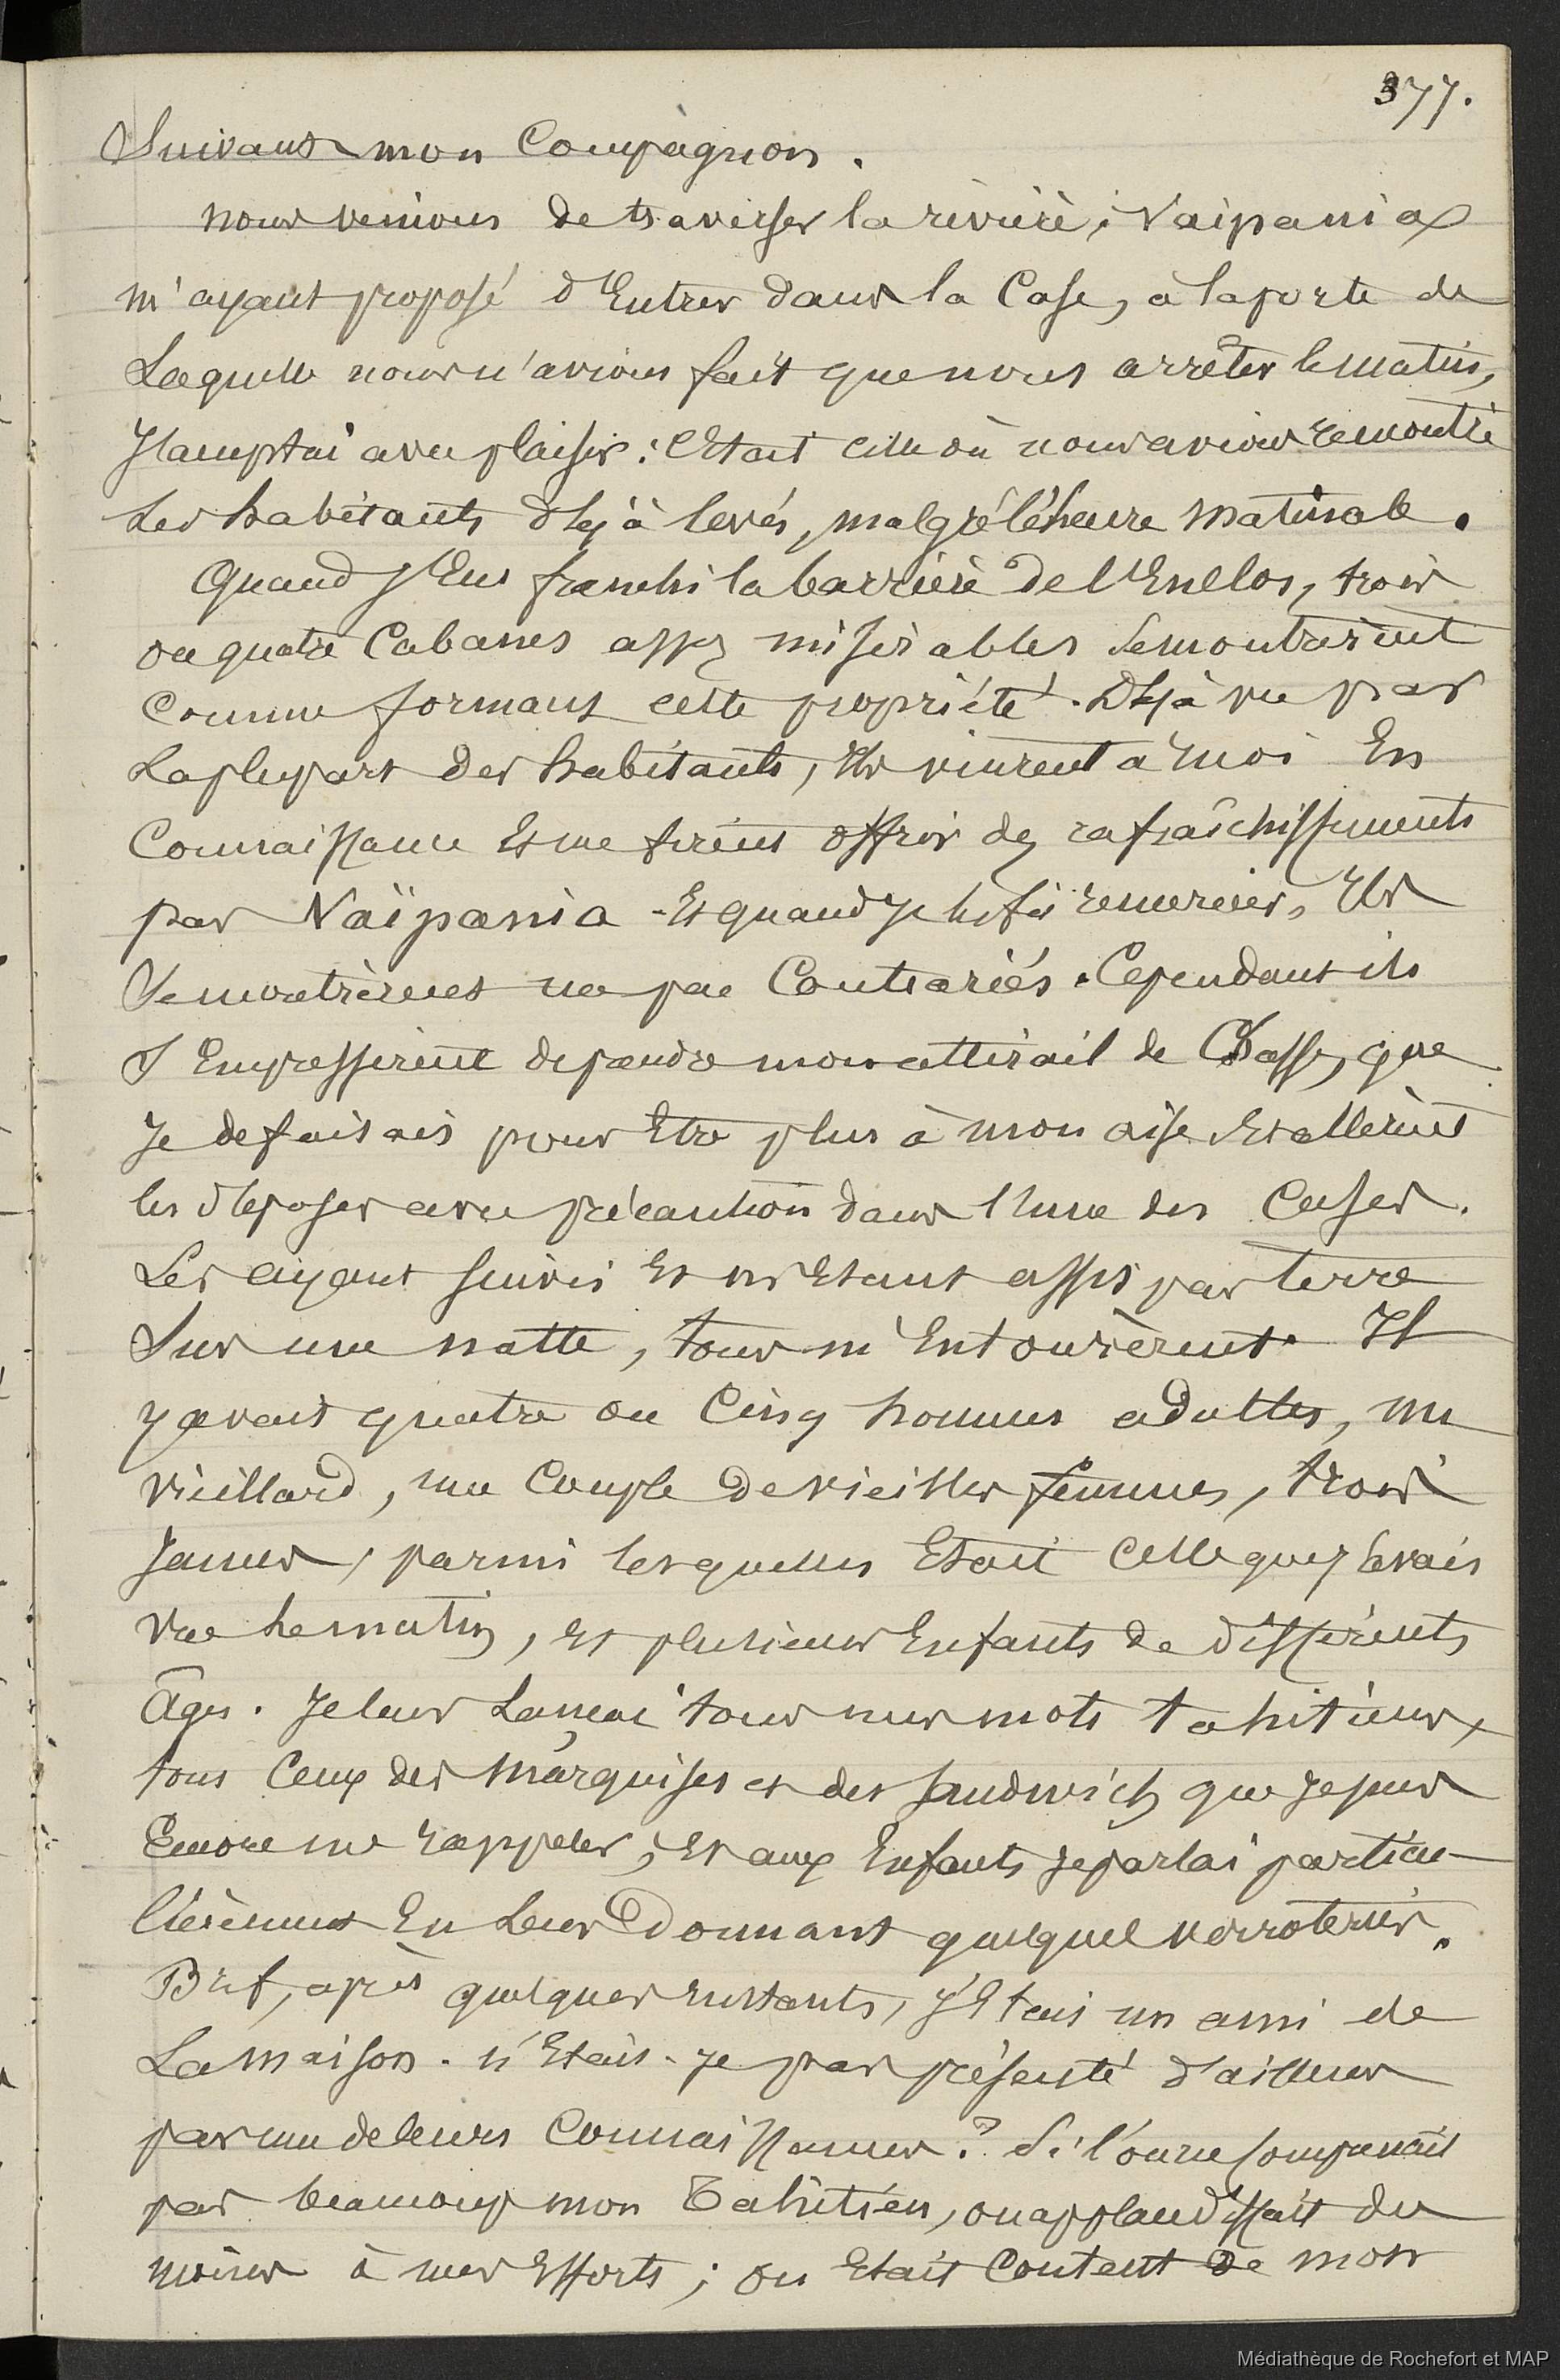 377.
Suivant mon Compagnon.
nous venions de traverser la rivière; Vaipania
m'ayant proposé d'Entrer dans la Case, à la porte de
Laquelle nous n'avions fait que nous arrêter le matin,
J'acceptai avec plaisir: C'Etait celle où nous avions rencontré
Les habitants déjà levés, malgré l'heure matinale.
Quand J'Eus franchi la barrière de l'Enclos, trois
ou quatre Cabanes assez misérables Se montrèrent
Comme formant cette propriété. Déjà vu par
La plupart des habitants, Ils vinrent à moi En
Connaissance Et me firent offrir des rafraîchissements
par Vaïpania - Et quand Je les fis remercier, Ils
Se montrèrent un peu Contrariés. Cependant ils
S'Empressèrent de prendre mon attirail de Chasse, que
Je defaisais pour Etre plus à mon aise Et allèrent
les déposer avec précaution dans l'Une des Cases.
Les ayant Suivis Et m'Etant assis par terre
Sur une natte, tous m'Entourèrent. Il
y avait quatre ou Cinq hommes adultes, un
vieillard, un Couple de vieilles femmes, trois
Jeunes, parmi lesquelles Etait Celle que J'avais
vue Le matin, et plusieurs Enfants de différents
Âges. Je leur Lançai tous mes mots tahitiens,
tous Ceux des Marquises et des Sandwich que Je pus
Encore me rappeler, Et aux Enfants Je parlai particu-
lièrement En Leur Donnant quelques verroteries.
Bref, après quelques Instants, J'Etais un ami de
La maison. N'Etais-Je pas présenté d'ailleurs
par un de leurs Connaissances? Si l'on ne Comprenait
pas beaucoup mon Tahitien, on applaudissait du
moins à mes Efforts; on Etait Content de mon
Médiathèque de Rochefort et MAP